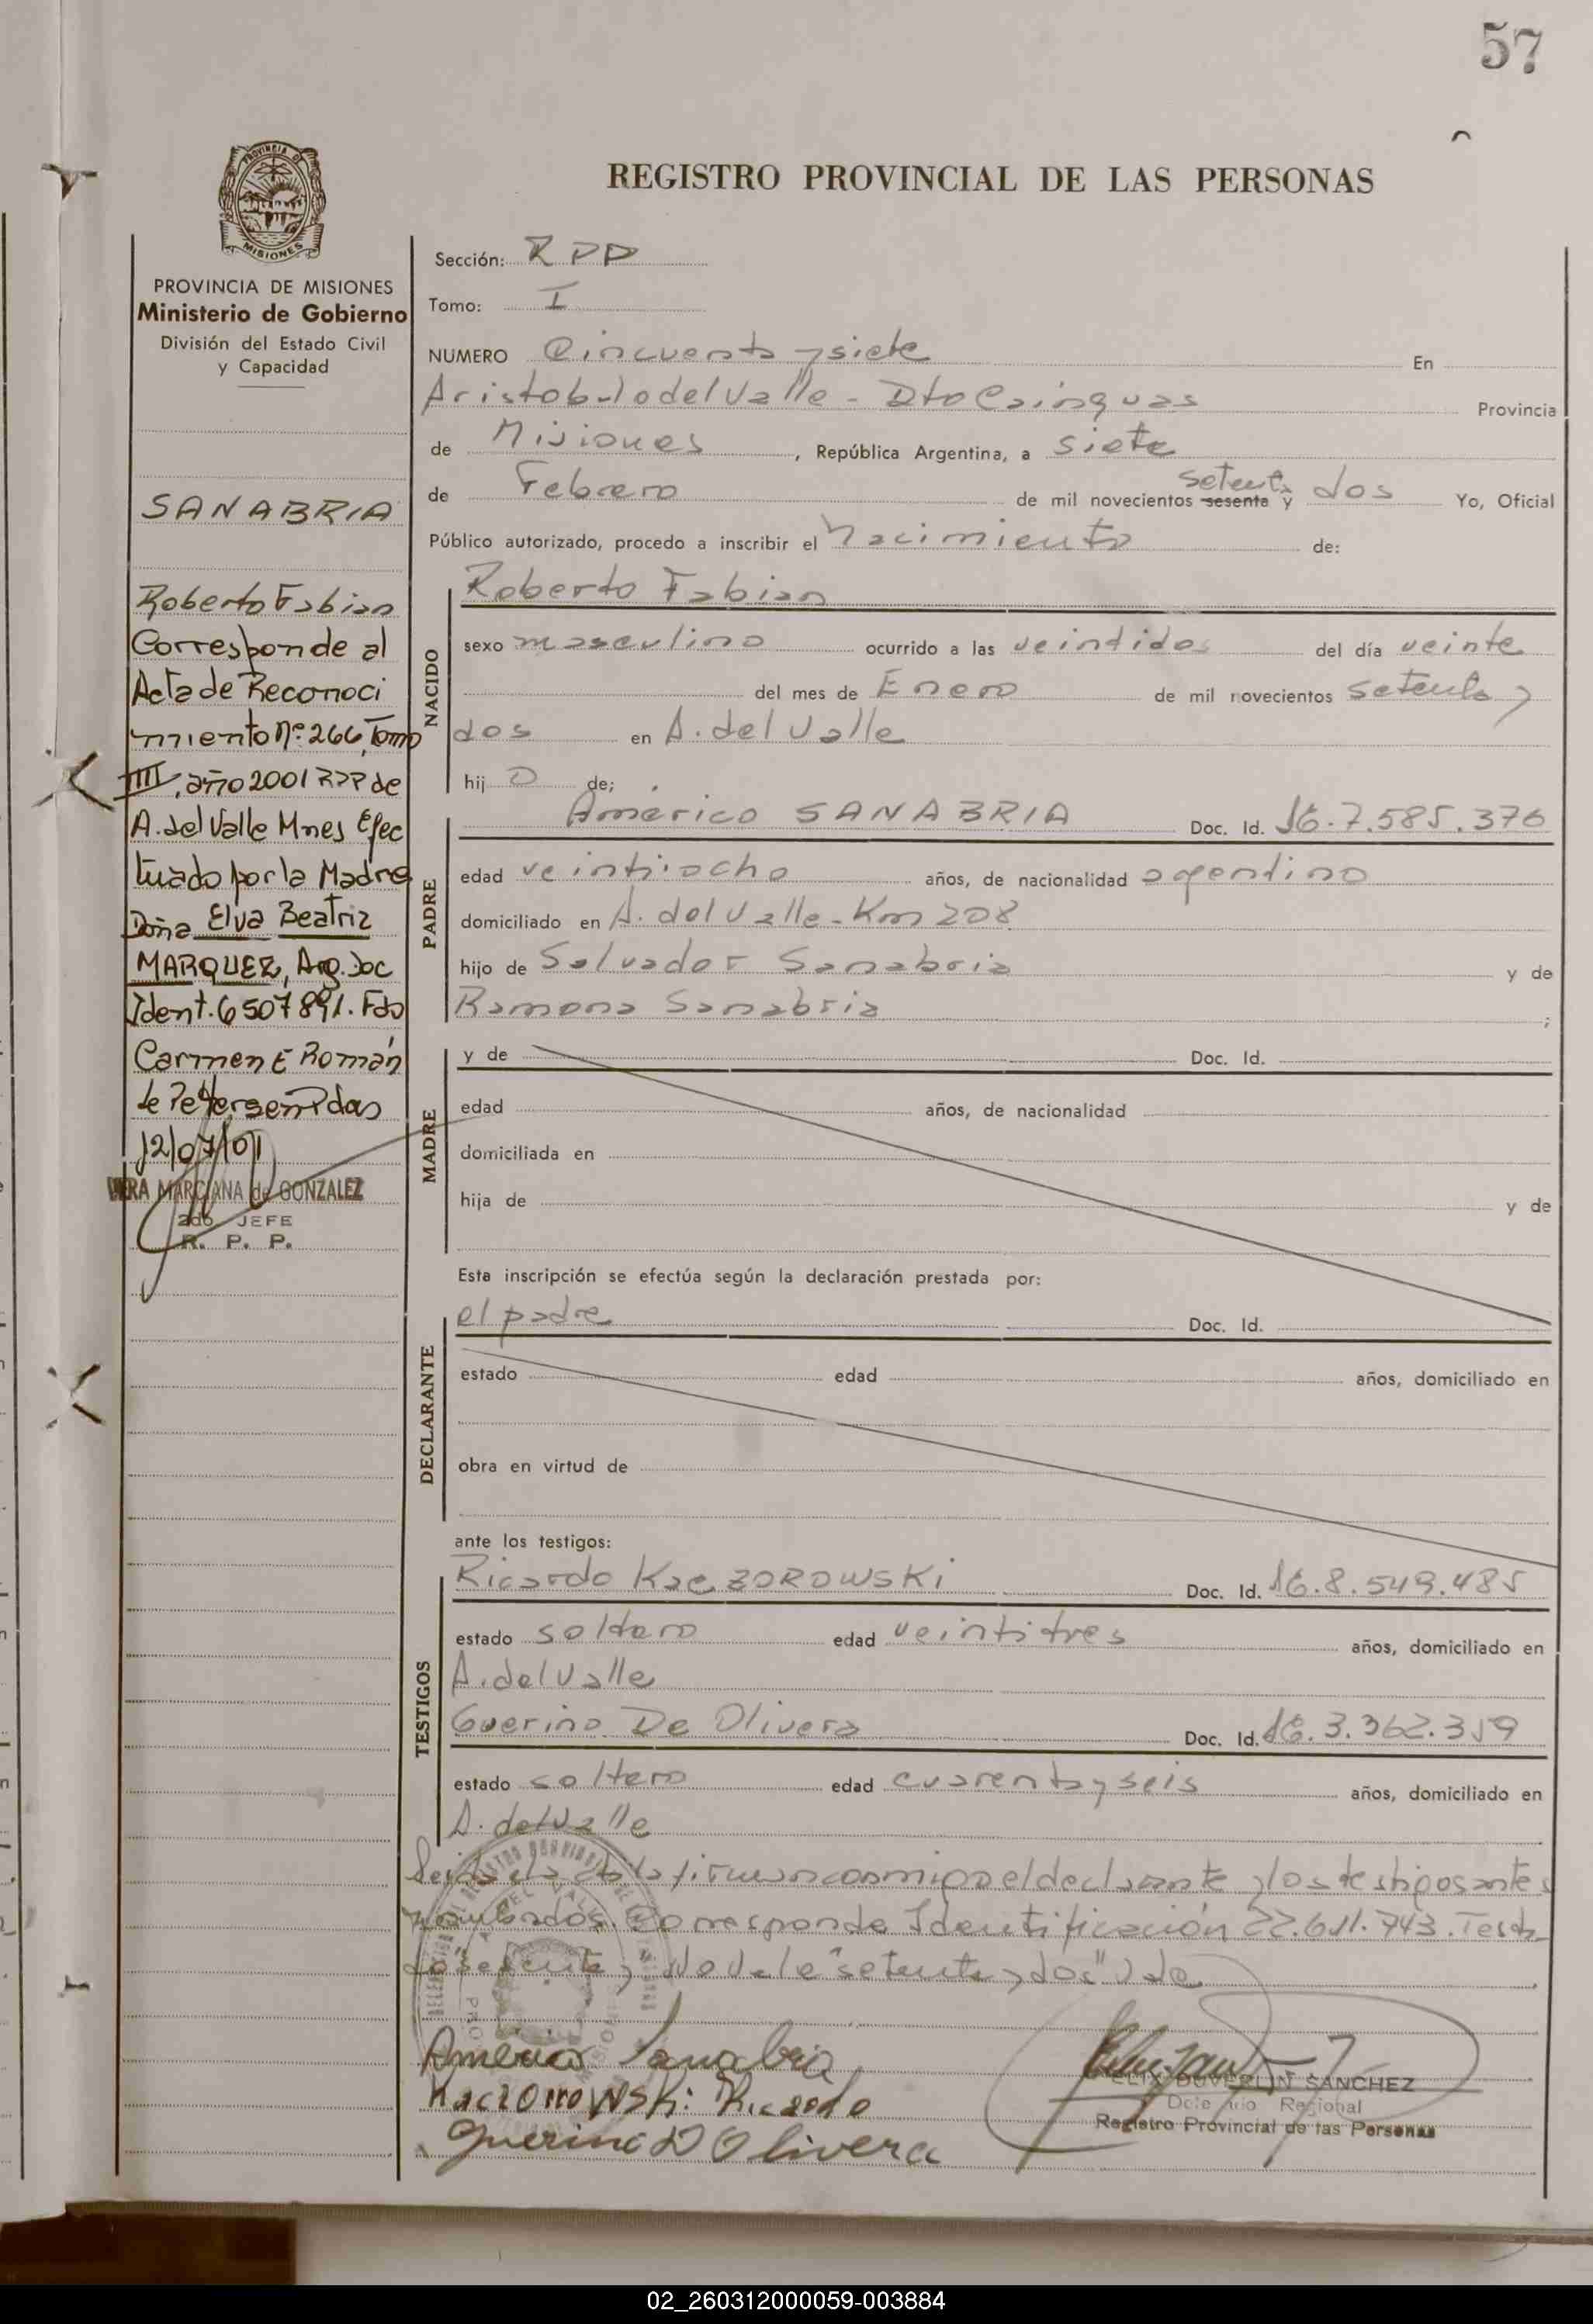 57
REGISTRO PROVINCIAL DE LAS PERSONAS
PROVINCIA DE
MISIONES
PROVINCIA DE MISIONES
Ministerio de Gobierno
División del Estado Civil
y Capacidad
SANABRIA
Roberto Fabian
Corresponde al
Acta de Reconoci
miento Nº: 266, Tomo
III, año 2001 RPP de
A. del Valle Mnes Efec
tuado por la Madre
Doña Elva Beatriz
MARQUEZ, Arg. Doc
Ident. 6507891. Fdo
Carmen E Román
de Petterson Pdas
12/07/01
MARCIANA de GONZALEZ
2do JEFE
R. P. P.
Sección: RPP
Tomo: I
NUMERO Cincuenta y siete En
Aristobulo del Valle - Dto Cainguas Provincia
de Misiones, República Argentina, a siete
de Febrero de mil novecientos sesenta y setenta dos Yo, Oficial
Público autorizado, procedo a inscribir el Nacimiento de:
NACIDO
Roberto Fabian
sexo masculino ocurrido a las veintidos del día veinte
del mes de Enero de mil novecientos setenta y
dos en A. del Valle
hij o de;
PADRE
Américo SANABRIA Doc. Id. 7.585.376
edad veintiocho años, de nacionalidad agentino
domiciliado en A. del Valle - Km 208
hijo de Salvador Sanabria y de
Ramona Sanabria ;
MADRE
y de Doc. Id.
edad años, de nacionalidad
domiciliada en
hija de y de
Esta inscripción se efectúa según la declaración prestada por:
DECLARANTE
el padre Doc. Id.
estado edad años, domiciliado en
obra en virtud de
ante los testigos:
TESTIGOS
Ricardo KacZOROWSKi Doc. Id. 8.549.485
estado soltero edad veintitres años, domiciliado en
A. del Valle
Guerino De Olivera Doc. Id. 3.362.359
estado soltero edad cuarenta y seis años, domiciliado en
A. del Valle
Leida el acta la firman conmigo el declarante y los testigos antes
nombrados. Corresponde Identificación 22.611.743. Testa
do "sesenta y" No Vale "setenta y dos" Vale
Américo Sanabria
Kaczorowski Ricardo
Guerino D Olivera
FELIX DUVERLIN SANCHEZ
Delegado Regional
Registro Provincial de las Personas
02_260312000059-003884